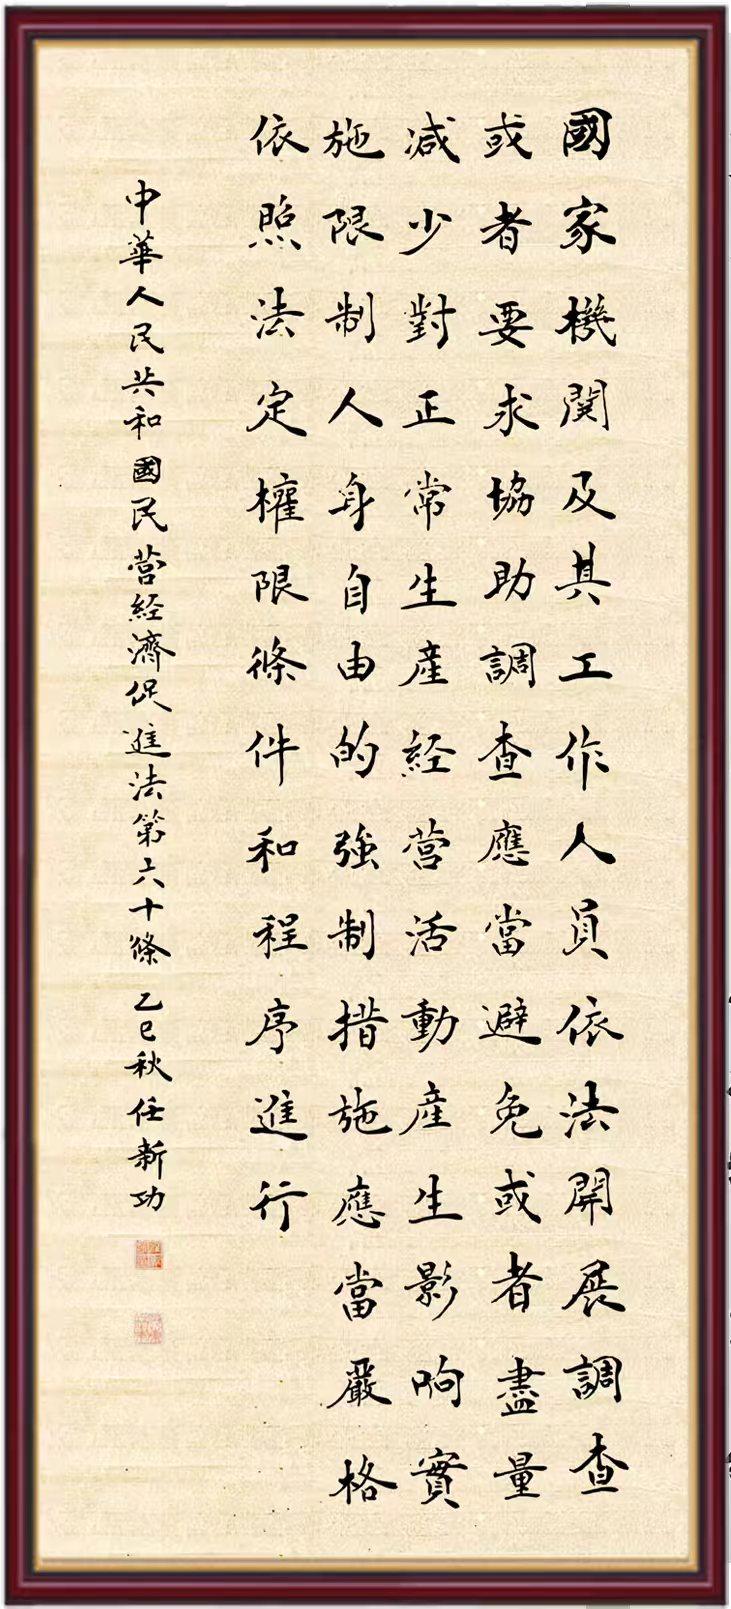 國家機関及其工作人員依法開展調查
或者要求協助調查應當避免或者盡量
减少對正常生產経营活動產生影响實
施限制人身自由的強制措施應當嚴格
依照法定權限條件和程序進行
中華人民共和國民营経濟促進法第六十條 乙巳秋任新功